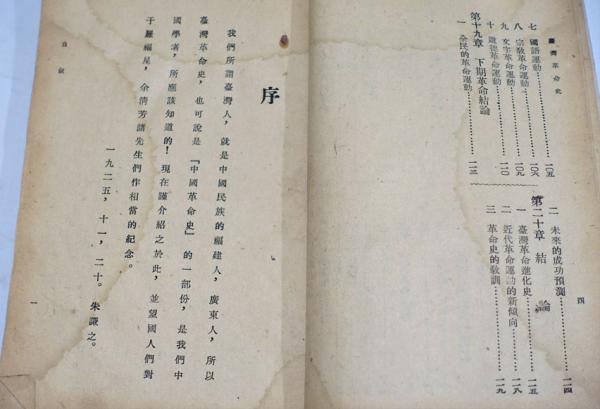 臺灣革命史
七　國語運動……一〇五
八　宗教革命運動……一〇六
九　文字革命運動……一〇九
十　道德革命運動……一一〇
第十九章　下期革命結論
一　全民的革命運動……一一三
二　未來的成功預測……一一四
第二十章　結論
一　臺灣革命進化史……一一五
二　近代革命運動的新傾向……一一八
三　革命史的敎訓……一一九
四
序
我們所謂臺灣人，就是中國民族的福建人，廣東人，所以
臺灣革命史，也可說是『中國革命史』的一部份，是我們中
國學者，所應該知道的！現在謹介紹之於此，並望國人們對
于羅福星，余清芳諸先生們作相當的紀念。
一九二五，十一，二十。朱謙之。
自叙
一